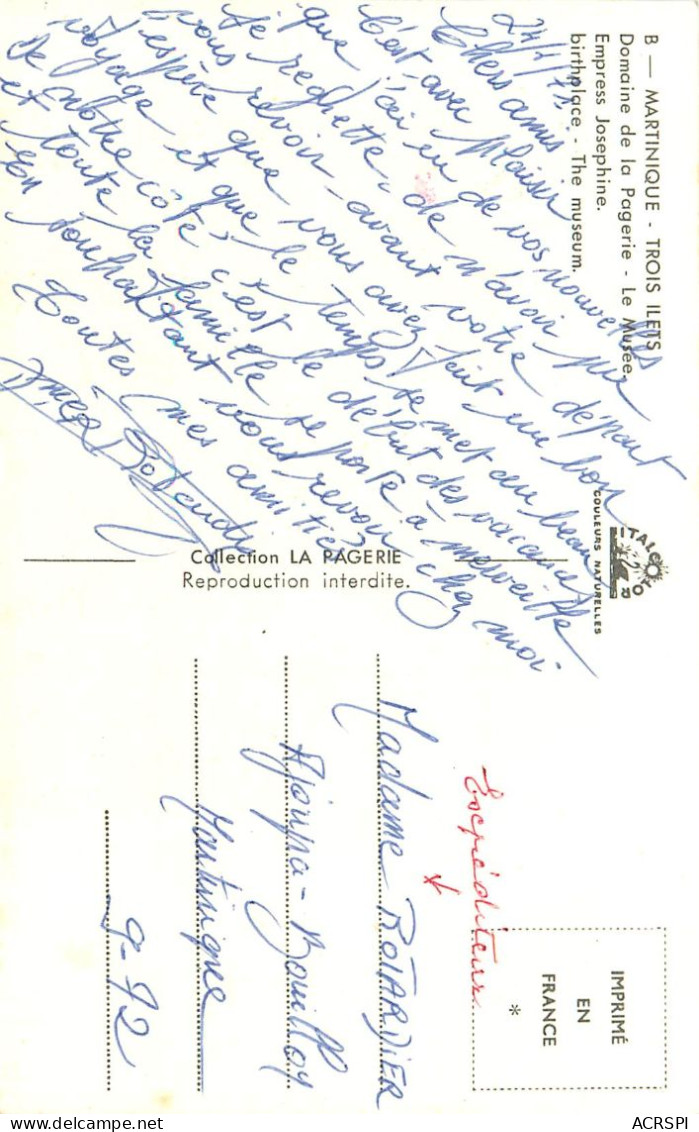 B — MARTINIQUE - TROIS ILETS
Domaine de la Pagerie - Le Musée.
Empress Josephine.
birthplace - The museum.
Chers amis
C'est avec plaisir
que j'ai eu de vos nouvelles
Je reghette, de n'avoir pu
vous revoir avant votre départ
J'espère que vous avez fait un bon
voyage et que le temps se met au beau
De notre côté, c'est le début des vacances
et toute la famille se porte à merveille
En souhaitant vous revoir chez moi
Toutes mes amitiés
Collection LA PAGERIE
Reproduction interdite.
ITALCOLOR
COULEURS NATURELLES
IMPRIMÉ
EN
FRANCE
*
Expéditeur
Madame ROTARDIER
Ajoupa-Bouillon
Martinique
9-72
ACRSPI